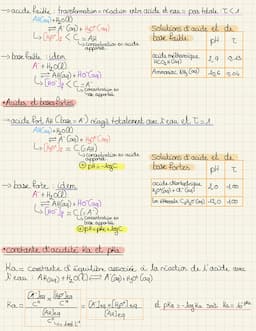 → acide faible : transformation = réaction entre acide et eau = pas totale τ < 1
AH(aq) + H₂O(l)
⇌ A⁻(aq) + H₃O⁺(aq)
↳ [H₃O⁺]f < C = AH
↳ concentration en acide apporté
→ base faible : idem
A⁻ + H₂O(l)
⇌ AH(aq) + HO⁻(aq)
↳ [HO⁻]f < C = A⁻
↳ concentration en base apportée
Solutions d'acide et de base faible
pH
τ
acide méthanoïque
HCO₂H(aq)
2,9
Ammoniac NH₃(aq)
10,6
0,04
• Acides et bases fortes
→ acide fort AH (base = A⁻) réagit totalement avec l'eau et τ = 1
AH(aq) + H₂O(l)
→ A⁻(aq) + H₃O⁺(aq)
↳ [H₃O⁺]f = C (AH)
↳ concentration en acide apporté
pH = -log C
→ base forte : idem
A⁻ + H₂O(l)
→ AH(aq) + HO⁻(aq)
↳ [HO⁻]f = C (A⁻)
↳ concentration en base apportée
Solutions d'acide et de base fortes
pH
τ
acide chlorhydrique
H₃O⁺(aq) + Cl⁻(aq)
2,0
1,00
C₂H₅O⁻(aq)
12,0
1,00
• constante d'acidité Ka et pKa
Ka = constante d'équilibre associée à la réaction de l'acide avec
l'eau : AH(aq) + H₂O(l) ⇌ A⁻(aq) + H₃O⁺(aq)
Ka = [A⁻]éq/C° × [H₃O⁺]éq/C° / [AH]éq/C° = [A⁻]éq × [H₃O⁺]éq / [AH]éq et pKa = -log Ka soit Ka = 10⁻ᵖᴷᵃ